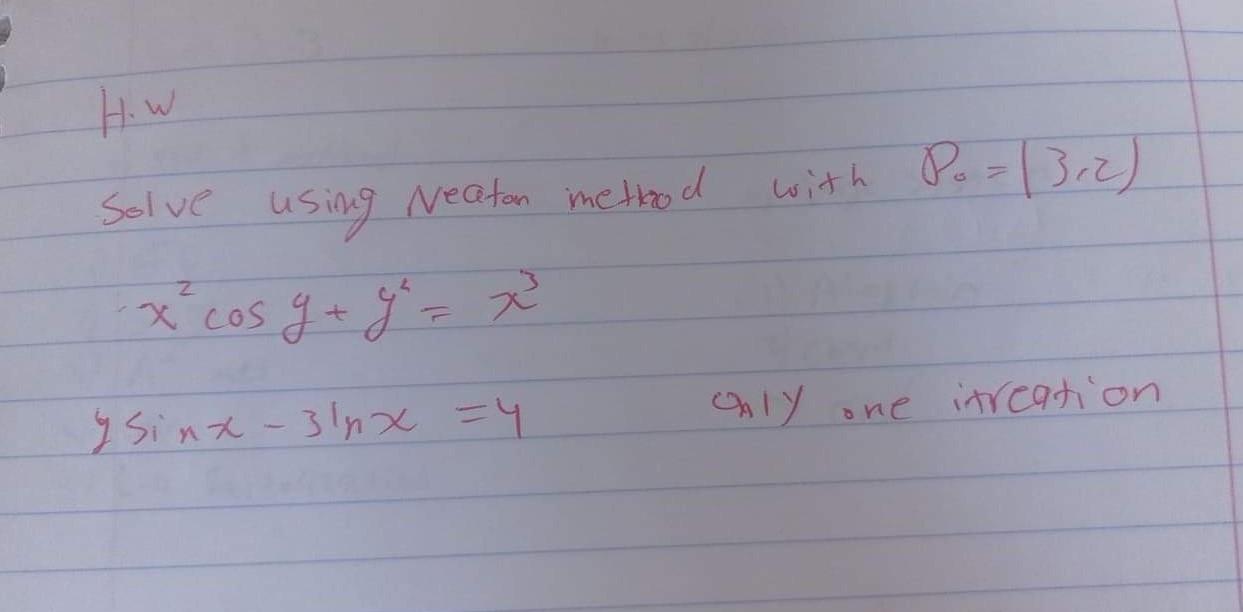 H.W
Solve using Neaton method with P₀ = (3,2)
x² cos y + y⁴ = x³
y sinx - 3lnx = 4 only one itreation